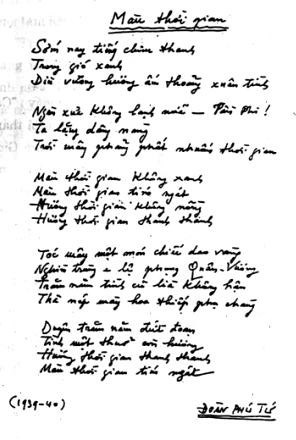 Màu thời gian
Sớm nay tiếng chim thanh
Trong gió xanh
Dìu vương hương ấm thoảng xuân tình
Ngàn xưa không lạnh nữa — Tần Phi!
Ta lặng dâng nàng
Trời mây phảng phất nhuốm thời gian
Màu thời gian không xanh
Màu thời gian tím ngát
Hương thời gian không nồng
Hương thời gian thanh thanh
Tóc mây một món chiếc dao vàng
Nghìn trùng e lệ phụng Quân Vương
Trăm năm tình cũ lìa không hận
Thà nép mày hoa thiếp phụ chàng
Duyên trăm năm đứt đoạn
Tình một thuở còn hương
Hương thời gian thanh thanh
Màu thời gian tím ngát
(1939-40)
ĐOÀN PHÚ TỨ